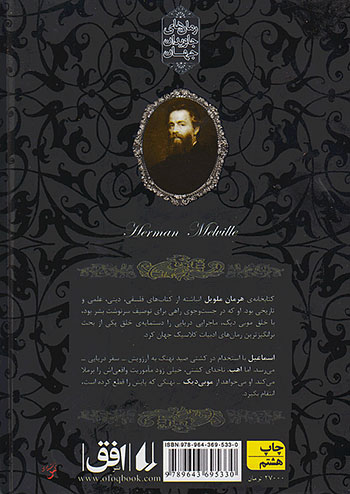 رمان‌های
جاویدان
جهان
Herman Melville
کتابخانه‌ی هرمان ملویل انباشته از کتاب‌های فلسفی، دینی، علمی و
تاریخی بود. او که در جست‌وجوی راهی برای توصیف سرنوشت بشر بود،
با خلق موبی دیک، ماجرایی دریایی را دستمایه‌ی خلق یکی از بحث
برانگیزترین رمان‌های ادبیات کلاسیک جهان کرد.
اسماعیل با استخدام در کشتی صید نهنگ به آرزویش ـ سفر دریایی ـ
می‌رسد، اما اهب، ناخدای کشتی، خیلی زود مأموریت واقعی‌اش را برملا
می‌کند. او می‌خواهد از موبی‌دیک ـ نهنگی که پایش را قطع کرده است،
انتقام بگیرد.
چاپ
هشتم
۲۷۰۰۰ تومان
ISBN: 978-964-369-533-0
9 789643 695330
افق
www.ofoqbook.com